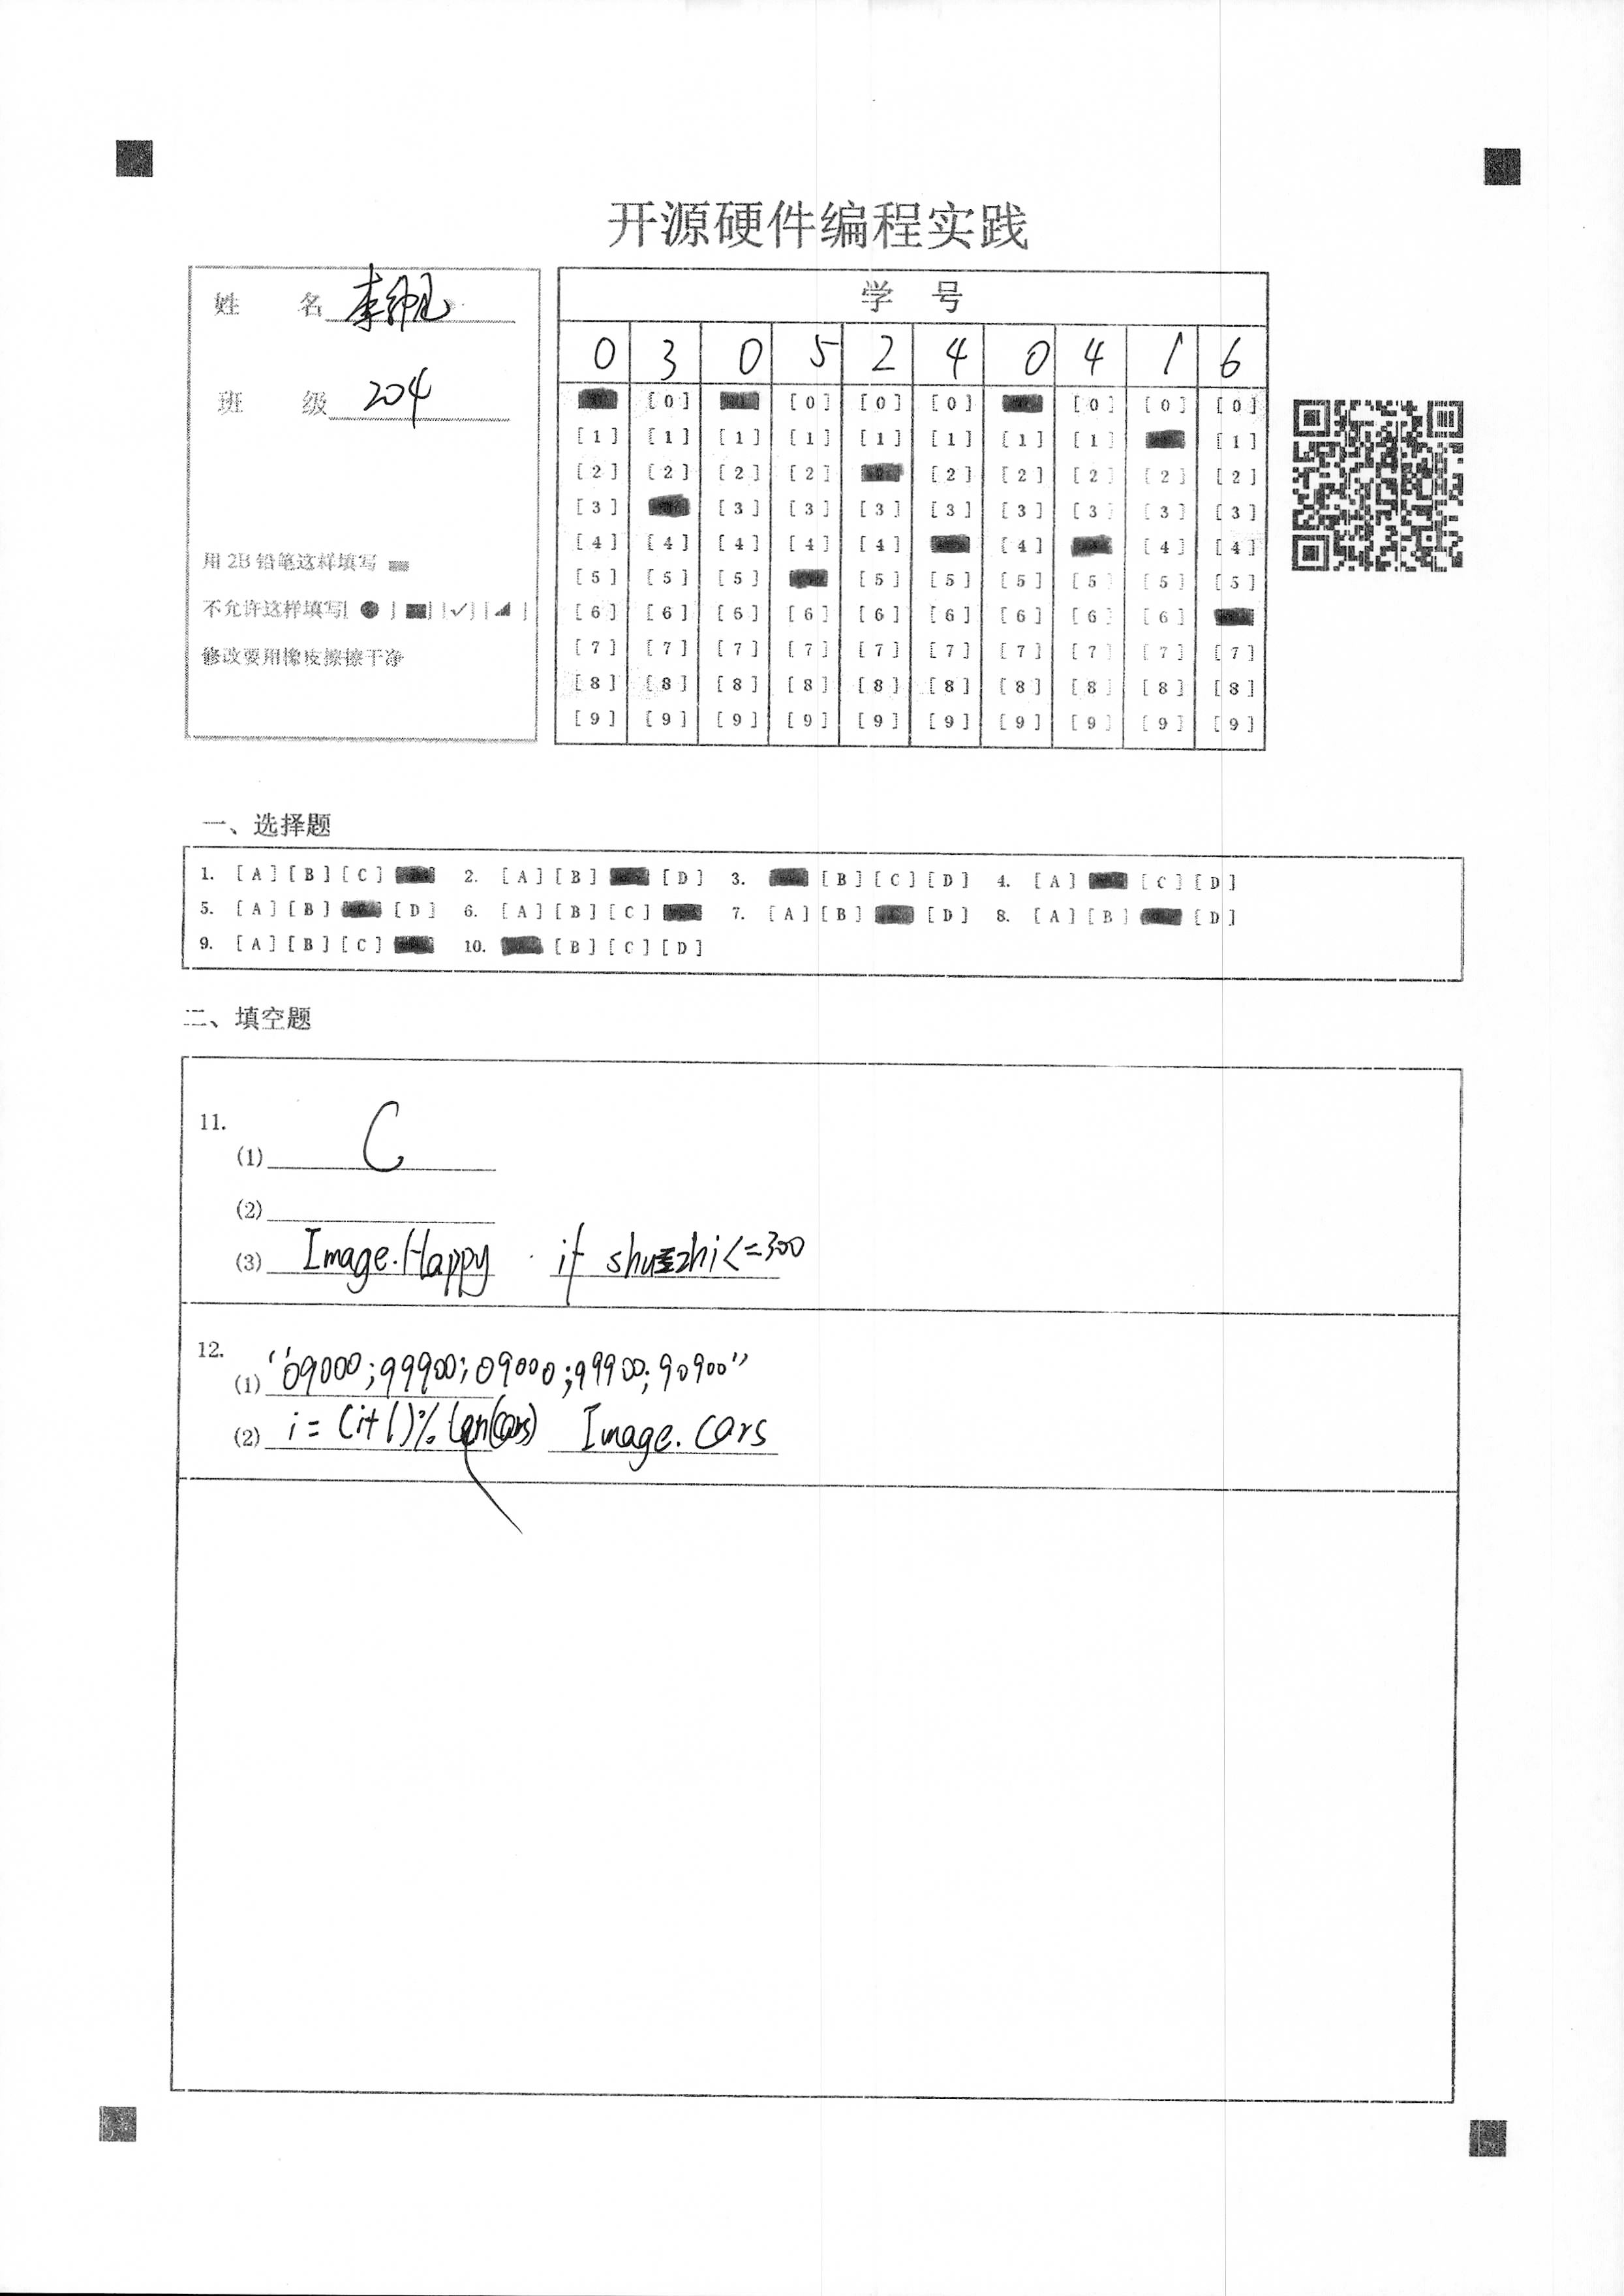 开源硬件编程实践
姓 名 李
班 级 204
用 2B 铅笔这样填写
不允许这样填写[ ● ] [■] [✓] [◢ ]
修改要用橡皮擦擦干净
学 号
0 3 0 5 2 4 0 4 1 6
[0] [0] [0] [0] [0] [0] [0]
[1] [1] [1] [1] [1] [1] [1] [1] [1]
[2] [2] [2] [2] [2] [2] [2] [2] [2]
[3] [3] [3] [3] [3] [3] [3] [3] [3]
[4] [4] [4] [4] [4] [4] [4] [4]
[5] [5] [5] [5] [5] [5] [5] [5] [5]
[6] [6] [6] [6] [6] [6] [6] [6] [6]
[7] [7] [7] [7] [7] [7] [7] [7] [7] [7]
[8] [8] [8] [8] [8] [8] [8] [8] [8] [8]
[9] [9] [9] [9] [9] [9] [9] [9] [9] [9]
一、选择题
1. [A] [B] [C] 2. [A] [B] [D] 3. [B] [C] [D] 4. [A] [C] [D]
5. [A] [B] [D] 6. [A] [B] [C] 7. [A] [B] [D] 8. [A] [B] [D]
9. [A] [B] [C] 10. [B] [C] [D]
二、填空题
11.
(1) C
(2)
(3) Image.Happy if shuzhi<=300
12.
(1) "09000;99900;09000;99900;90900"
(2) i=(i+1)%len(cars) Image.cars